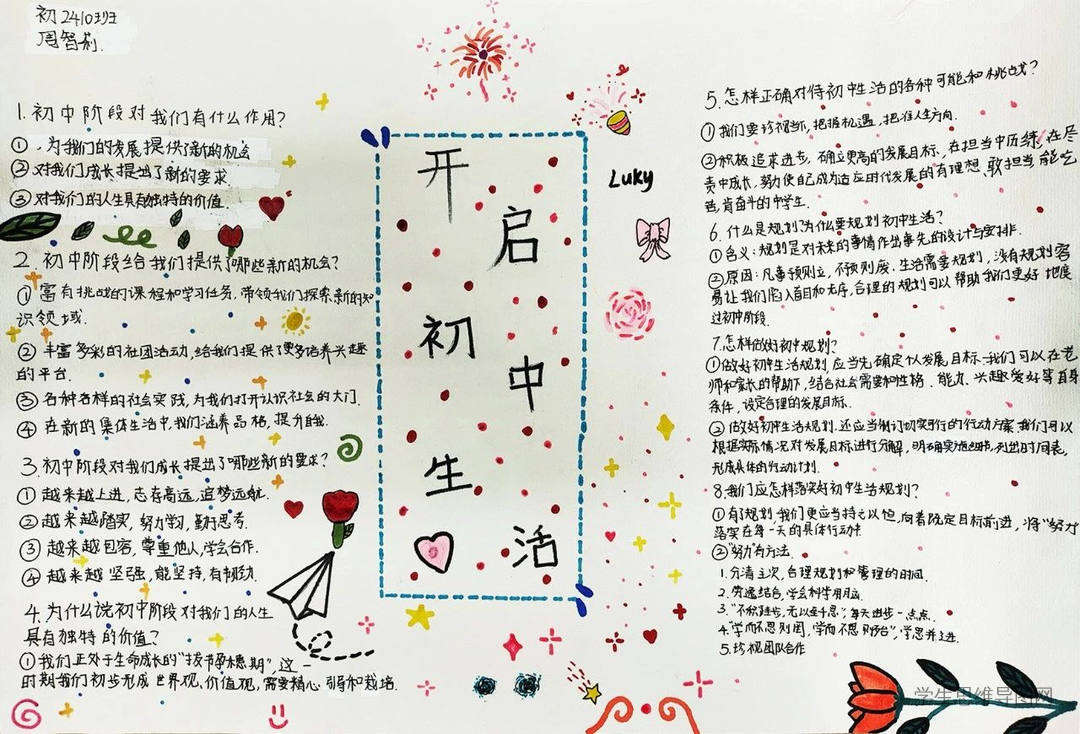 初2410班
周智莉.
1.初中阶段对我们有什么作用?
①.为我们的发展提供了新的机会
②对我们成长提出了新的要求.
③对我们的人生具有独特的价值
2.初中阶段给我们提供了哪些新的机会?
①富有挑战的课程和学习任务,带领我们探索新的知
识领域.
②丰富多彩的社团活动,给我们提供了更多培养兴趣
的平台.
③各种各样的社会实践,为我们打开认识社会的大门.
④在新的集体生活中,我们涵养品格,提升自我.
3.初中阶段对我们成长提出了哪些新的要求?
①越来越上进,志存高远,追梦远航.
②越来越踏实,努力学习,勤于思考.
③越来越包容,尊重他人,学会合作.
④越来越坚强,能坚持,有韧劲.
4.为什么说初中阶段对我们的人生
具有独特的价值?
①我们正处于生命成长的“拔节孕穗期”,这一
时期我们初步形成世界观,价值观,需要精心引导和栽培.
开
启
初
中
生
活
Luky
5.怎样正确对待初中生活的各种可能和挑战?
①我们要珍视当下,把握机遇,把准人生方向.
②积极追求进步,确立更高的发展目标,在担当中历练,在尽
责中成长,努力使自己成为适应时代发展的有理想、敢担当、能吃
苦、肯奋斗的中学生.
6.什么是规划?为什么要规划初中生活?
①含义:规划是对未来的事情作出事先的设计与安排.
②原因:凡事预则立,不预则废.生活需要规划,没有规划容
易让我们陷入盲目和无序,合理的规划可以帮助我们更好地度
过初中阶段.
7.怎样做好初中规划?
①做好初中生活规划,应当先确定个人发展目标.我们可以在老
师和家长的帮助下,结合社会需要和性格、能力、兴趣爱好等自身
条件,设定合理的发展目标.
②做好初中生活规划,还应当制订切实可行的行动方案.我们可以
根据实际情况对发展目标进行分解,明确实施细节,列出时间表,
形成具体的行动计划.
8.我们应怎样落实好初中生活规划?
①有了规划,我们更应当持之以恒,向着既定目标前进,将“努力”
落实在每一天的具体行动中.
②“努力”有方法.
1.分清主次,合理规划和管理的时间.
2.劳逸结合,学会科学用脑.
3.“不积跬步,无以至千里”,每天进步一点点.
4.“学而不思则罔,学而不思则殆”,学思并进.
5.珍视团队合作
学生思维导图网